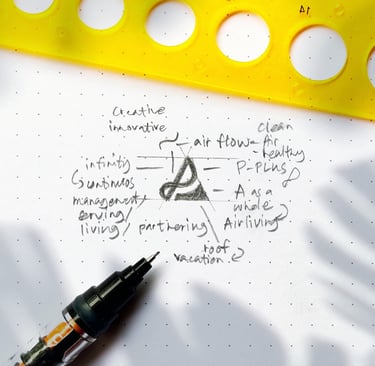 Creative
innovative
air flow - Air
clean
- healthy
infinity
P-PLUS
continuos
management
serving/
living/
A as a
whole
partnering
Airliving
roof
vacation